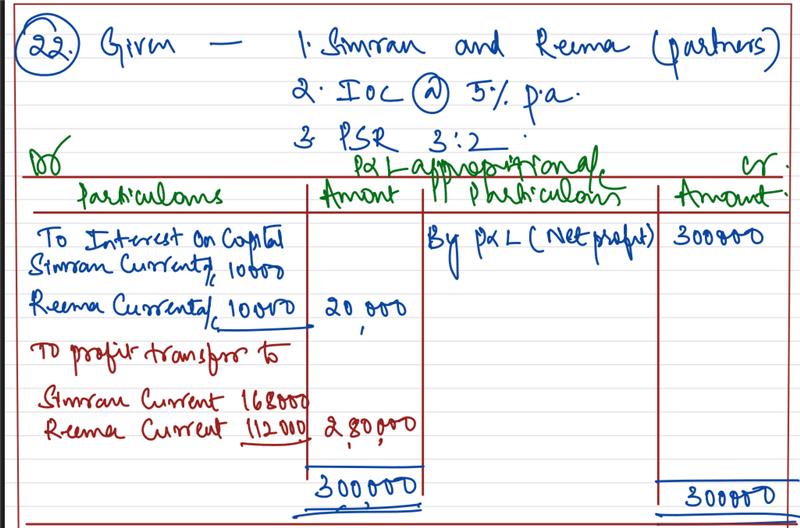 22. Given — 1. Simran and Reema (partners)
2. IOC @ 5% p.a.
3. PSR 3:2
Dr P&L appropriation a/c cr.
Particulars Amont Particulars Amount.
To Interest on Capital By P&L (Net profit) 300000
Simran Current a/c 10000
Reema Current a/c 10000 20,000
To profit transfer to
Simran Current 168000
Reema Current 112000 2,80,000
300,000 300000